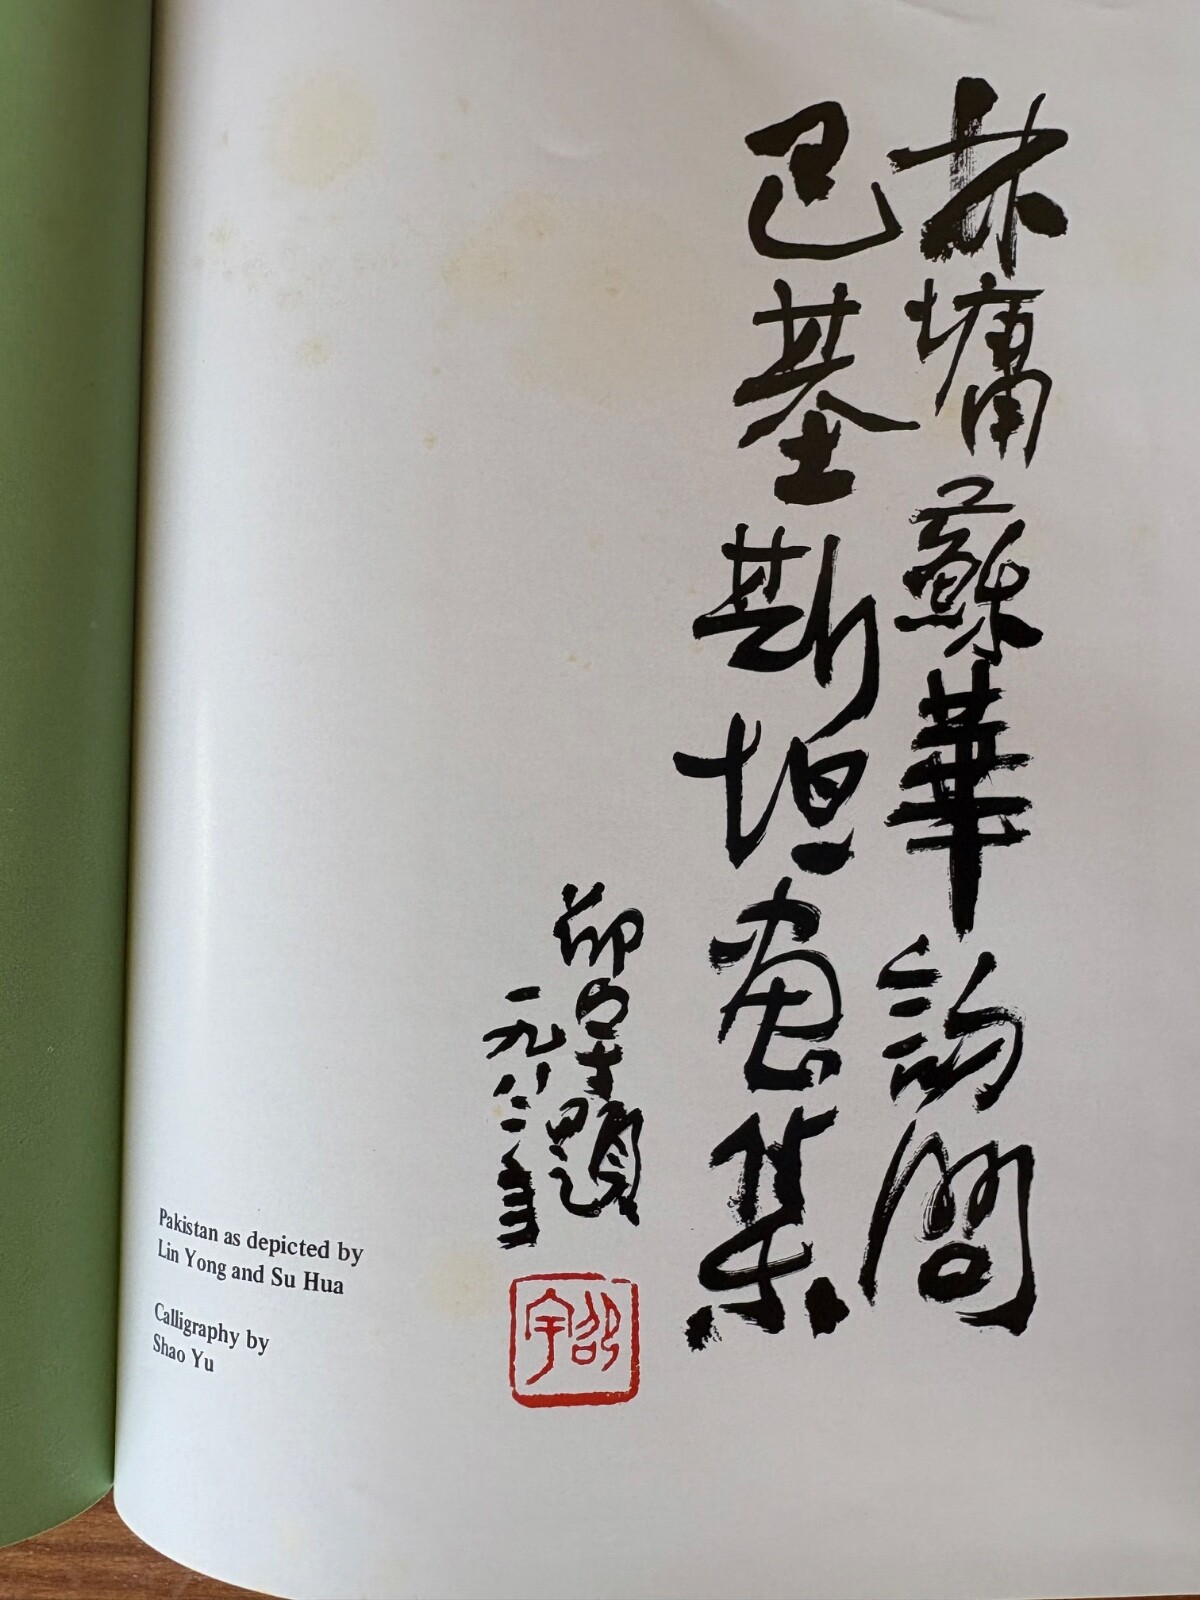 林墉蘇華訪問
巴基斯坦畫集
邵宇題
一九八
邵宇
Pakistan as depicted by
Lin Yong and Su Hua
Calligraphy by
Shao Yu